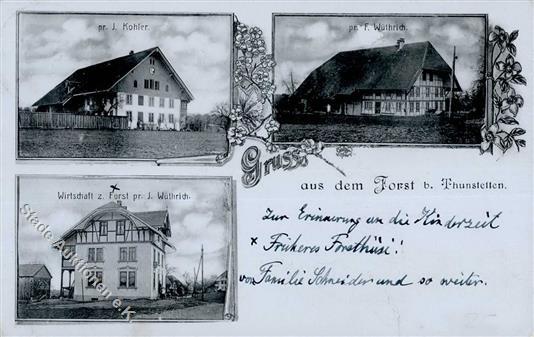 pr. J. Kohler.
pr. F. Wüthrich.
Gruss
aus dem Forst b. Thunstetten.
Wirtschaft z. Forst pr. J. Wüthrich.
Zur Erinnerung an die Kinderzeit
x Früheres Forsthüsi!
von Familie Schneider und so weiter.
Stade Auktionen e.K